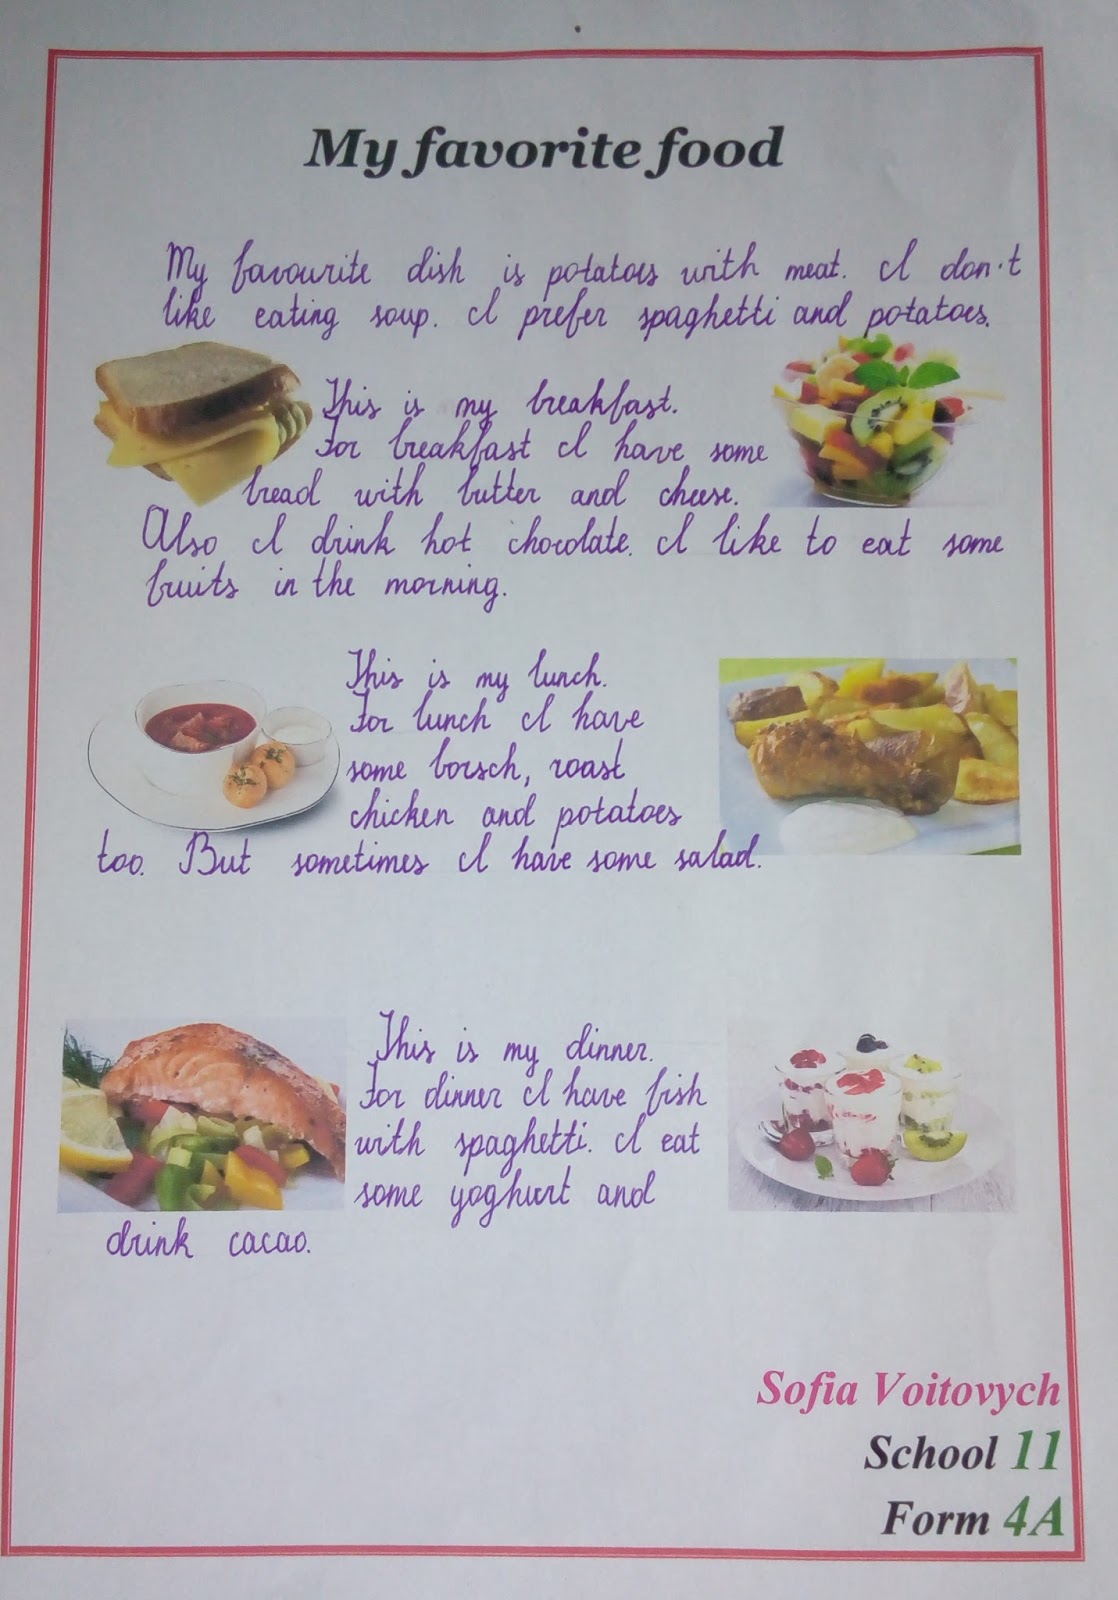 My favorite food
My favourite dish is potatoes with meat. I don't
like eating soup. I prefer spaghetti and potatoes.
This is my breakfast.
For breakfast I have some
bread with butter and cheese.
Also I drink hot chocolate. I like to eat some
fruits in the morning.
This is my lunch.
For lunch I have
some borsch, roast
chicken and potatoes
too. But sometimes I have some salad.
This is my dinner.
For dinner I have fish
with spaghetti. I eat
some yoghurt and
drink cacao.
Sofia Voitovych
School 11
Form 4A